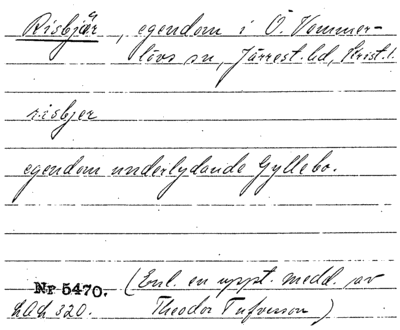 Risbjär, egendom i Ö. Vemmer-
lövs sn, Järrest. hd, Krist. l.
risbjer
egendom underlydande Gyllebo.
Nr 5470. (Enl. en uppt. medd. av
LAL 320. Theodor Tufvesson)